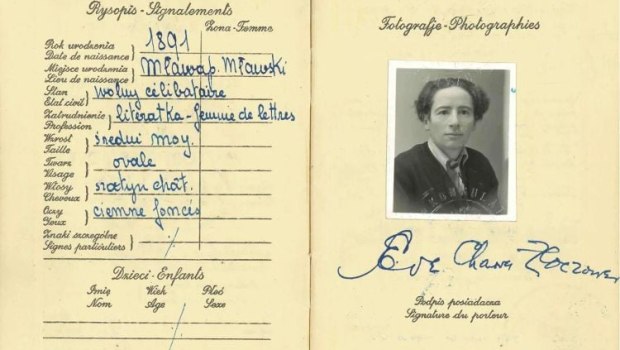 Rysopis - Signalements
Żona - Femme
Rok urodzenia
Date de naissance
1891
Miejsce urodzenia
Lieu de naissance
Mława p. Mławski
Stan
Etat civil
wolny célibataire
Zatrudnienie
Profession
literatka - femme de lettres
Wzrost
Taille
średni moy.
Twarz
Visage
ovale
Włosy
Cheveux
szatyn chât.
Oczy
Yeux
ciemne foncés
Znaki szczególne
Signes particuliers
Dzieci - Enfants
Imię Wiek Płeć
Nom Age Sexe
Fotografje - Photographies
Eve Chawa
Podpis posiadacza
Signature du porteur